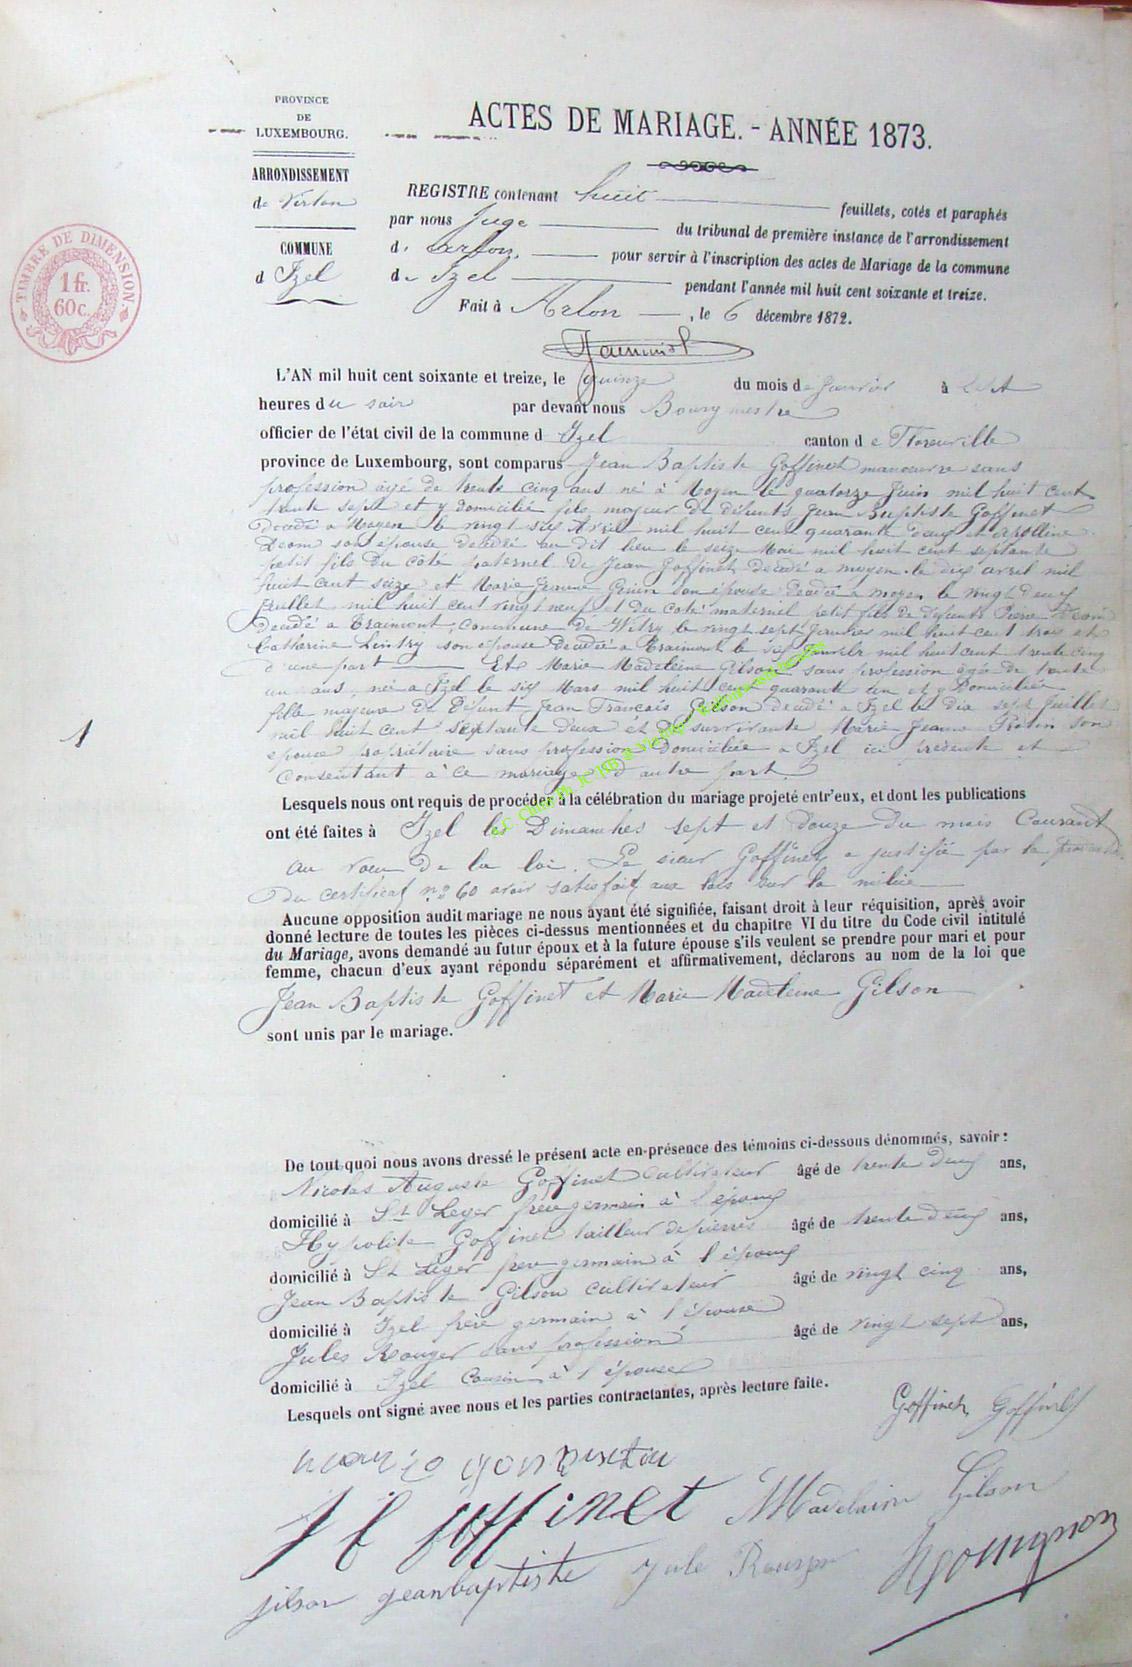 PROVINCE
DE
LUXEMBOURG.
ARRONDISSEMENT
de Virton
COMMUNE
d Izel
TIMBRE DE DIMENSION.
1 fr.
60 c.
ACTES DE MARIAGE. - ANNÉE 1873.
REGISTRE contenant huit feuillets, cotés et paraphés
par nous Juge du tribunal de première instance de l'arrondissement
d' pour servir à l'inscription des actes de Mariage de la commune
de Izel pendant l'année mil huit cent soixante et treize.
Fait à Arlon, le 6 décembre 1872.
L'AN mil huit cent soixante et treize, le quinze du mois de Janvier à
heures du soir par devant nous Bourgmestre
officier de l'état civil de la commune d Izel canton de Florenville
province de Luxembourg, sont comparus Jean Baptiste Goffinet manoeuvre sans
profession âgé de trente cinq ans né à Moyen le quatorze Juin mil huit cent
trente sept et y domicilié fils majeur de défunts Jean Baptiste Goffinet
Décédé a Moyen le vingt six Avril mil huit cent quarante deux et
Deom son épouse décédée au dit lieu le seize Mai mil huit cent septante
petit fils du côté paternel de Jean Goffinet Décédé a moyen le dix avril mil
huit cent seize et Marie Jeanne son épouse Décédée a moyen le vingt deux
Juillet mil huit cent vingt neuf et du coté maternel petit fils de défunts Pierre Deom
décédé a Traimont, commune de Witry le vingt sept Janvier mil huit cent trois et
Catherine son épouse Décédée a Traimont le six mil huit cent trente cinq
d'une part Et Marie Madeleine Gilson sans profession âgée de trente
un ans, née a Izel le six Mars mil huit cent quarante un et y Domiciliée
fille majeure de Défunt Jean Francois Gilson Décédé a Izel le dix sept Juillet
mil huit cent septante deux et de survivante Marie Jeanne son
epouse propriétaire sans profession Domiciliée a Izel ici présente et
Consentant à ce mariage d'autre part.
1
Lesquels nous ont requis de procéder à la célébration du mariage projeté entr'eux, et dont les publications
ont été faites à Izel les Dimanches sept et Douze Du mois Courant
au voeu De la loi. Le sieur Goffinet a justifié par la
du certificat no 60 avoir satisfait aux lois sur la milice
Aucune opposition audit mariage ne nous ayant été signifiée, faisant droit à leur réquisition, après avoir
donné lecture de toutes les pièces ci-dessus mentionnées et du chapitre VI du titre du Code civil intitulé
du Mariage, avons demandé au futur époux et à la future épouse s'ils veulent se prendre pour mari et pour
femme, chacun d'eux ayant répondu séparément et affirmativement, déclarons au nom de la loi que
Jean Baptiste Goffinet et Marie Madeleine Gilson
sont unis par le mariage.
De tout quoi nous avons dressé le présent acte en présence des témoins ci-dessous dénommés, savoir :
Nicolas Auguste Goffinet Cultivateur âgé de trente deux ans,
domicilié à St Leger frère germain à l'époux
Hypolite Goffinet tailleur de pierres âgé de trente deux ans,
domicilié à St Léger frere germain à l'époux
Jean Baptiste Gilson cultivateur âgé de vingt cinq ans,
domicilié à Izel frère germain à l'épouse
Jules Rouger sans profession âgé de vingt sept ans,
domicilié à Izel Cousin à l'épouse
Lesquels ont signé avec nous et les parties contractantes, après lecture faite.
Goffinet Goffinet
Goffinet Madelaine Gilson
jilson jeanbaptiste Jule